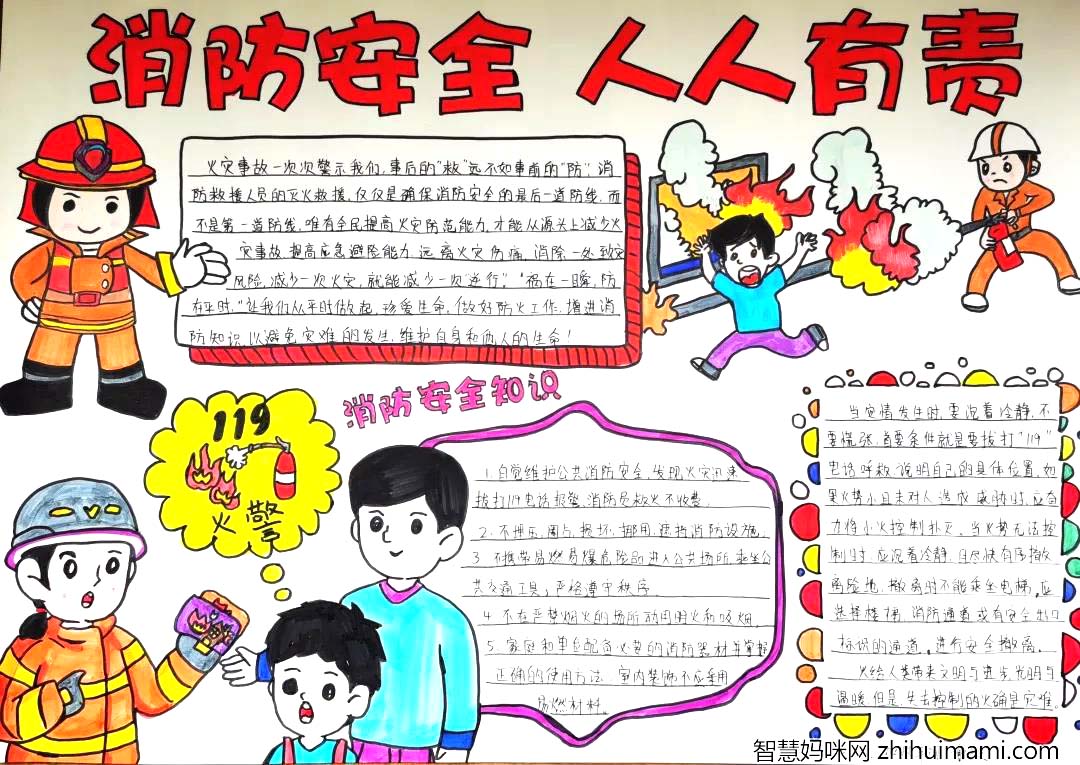 消防安全 人人有责
火灾事故一次次警示我们,事后的"救"远不如事前的"防",消
防救援人员的灭火救援,仅仅是确保消防安全的最后一道防线,而
不是第一道防线,唯有全民提高火灾防范能力,才能从源头上减少火
灾事故,提高应急避险能力,远离火灾伤痛,消除一处致灾
风险,减少一次火灾,就能减少一次逆行"。"祸在一瞬,防
在平时,"让我们从平时做起,珍爱生命,做好防火工作,增进消
防知识,以避免灾难的发生,维护自身和他人的生命!
消防安全知识
119
火警
1.自觉维护公共消防安全,发现火灾迅速
拨打119电话报警,消防员救火不收费。
2.不埋压、圈占、损坏、挪用、遮挡消防设施。
3.不携带易燃易爆危险品进入公共场所、乘坐公
共交通工具,严格遵守秩序
4.不在严禁烟火的场所动用明火和吸烟。
5.家庭和单位配备必要的消防器材并掌握
正确的使用方法 室内装饰不应采用
易燃材料。
当灾情发生时,要沉着冷静,不
要慌张,首要条件就是要拨打"119"
电话呼救,说明自己的具体位置,如
果火势小且未对人造成威胁时,应奋
力将小火控制扑灭,当火势无法控
制时,应沉着冷静,且尽快有序撤
离险地,撤离时不能乘坐电梯,应
选择楼梯,消防通道或有安全出口
标识的通道,进行安全撤离。
火给人类带来文明与进步,光明与
温暖,但是,失去控制的火确是灾难。
智慧妈咪网 zhihuimami.com